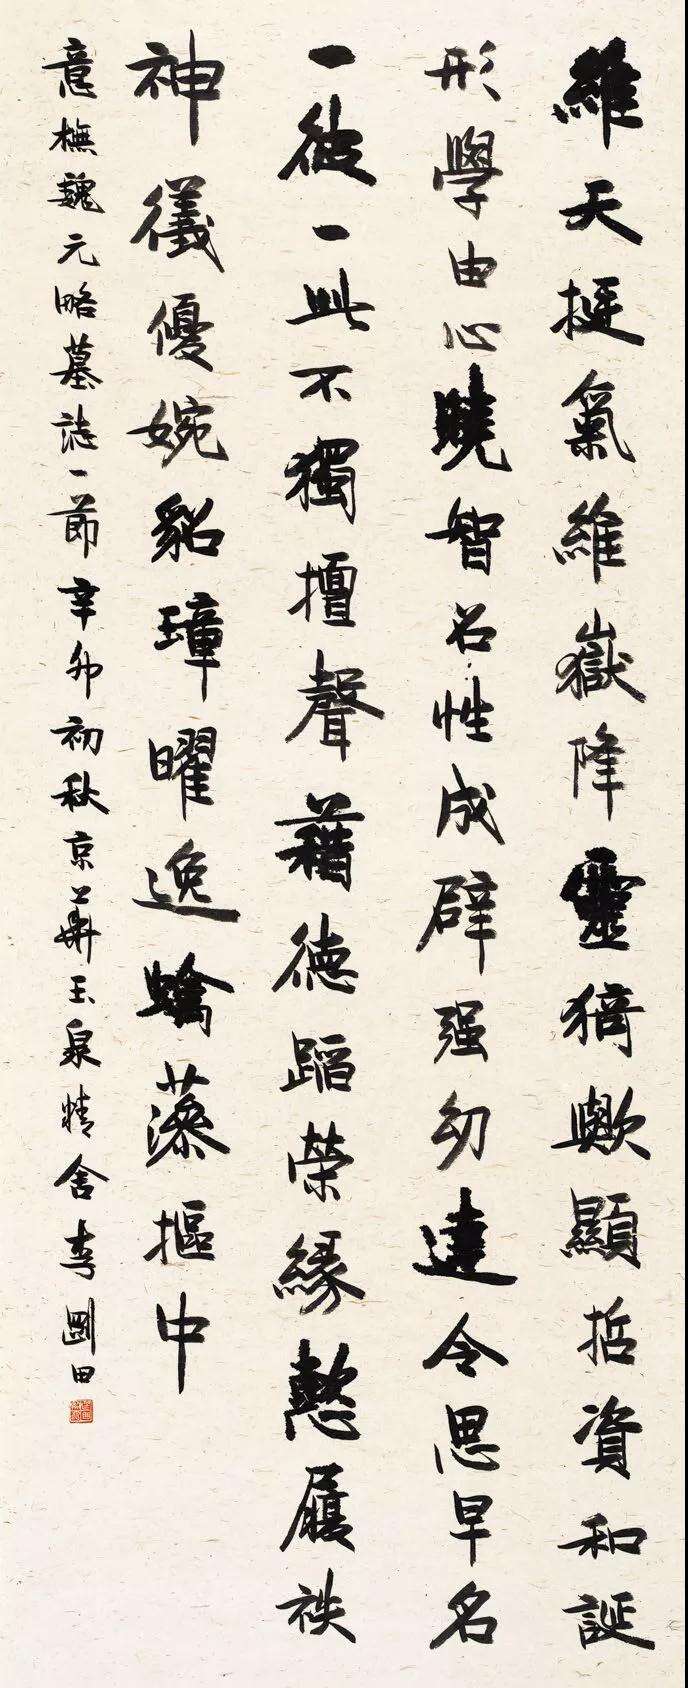 維天挺氣維嶽降靈猗歟顯哲資和誕
形學由心曉智名性成辟强幼達令思早名
一彼一此不獨擅聲藉德蹈榮緣懃履祑
神儀優婉貂璋曜逸蟜藻摳中
意橅魏元略墓誌一節辛卯初秋京華玉泉精舍李剛田